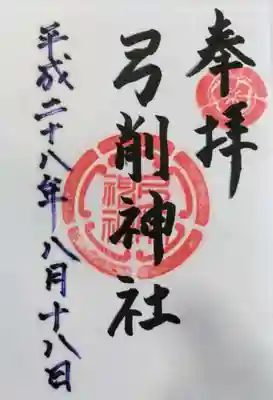 奉拝
弓削神社
平成二十八年八月十八日